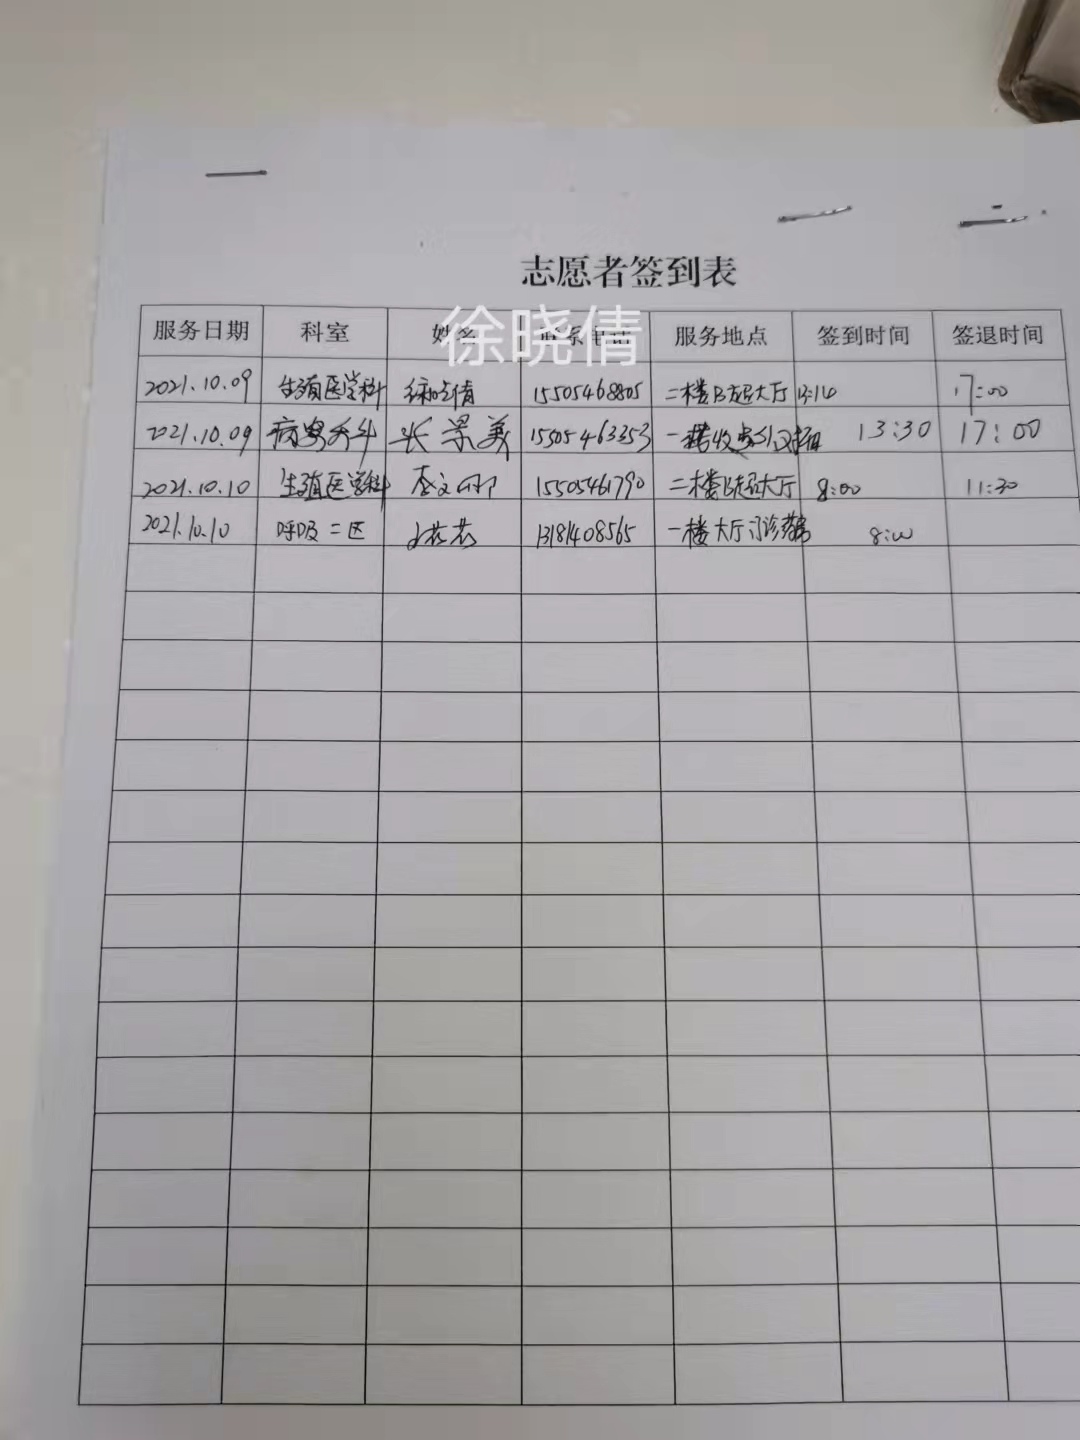 志愿者签到表
服务日期 科室 姓名 联系电话 服务地点 签到时间 签退时间
徐晓倩
2021.10.09 生殖医学科 徐晓倩 15505468805 二楼B超大厅 13:14 17:00
2021.10.09 病案 张景美 15505463353 一楼收费 13:30 17:00
2021.10.10 生殖医学科 15505461790 二楼B超大厅 8:00 11:30
2021.10.10 呼吸二区 13181408565 一楼大厅门诊药房 8:00